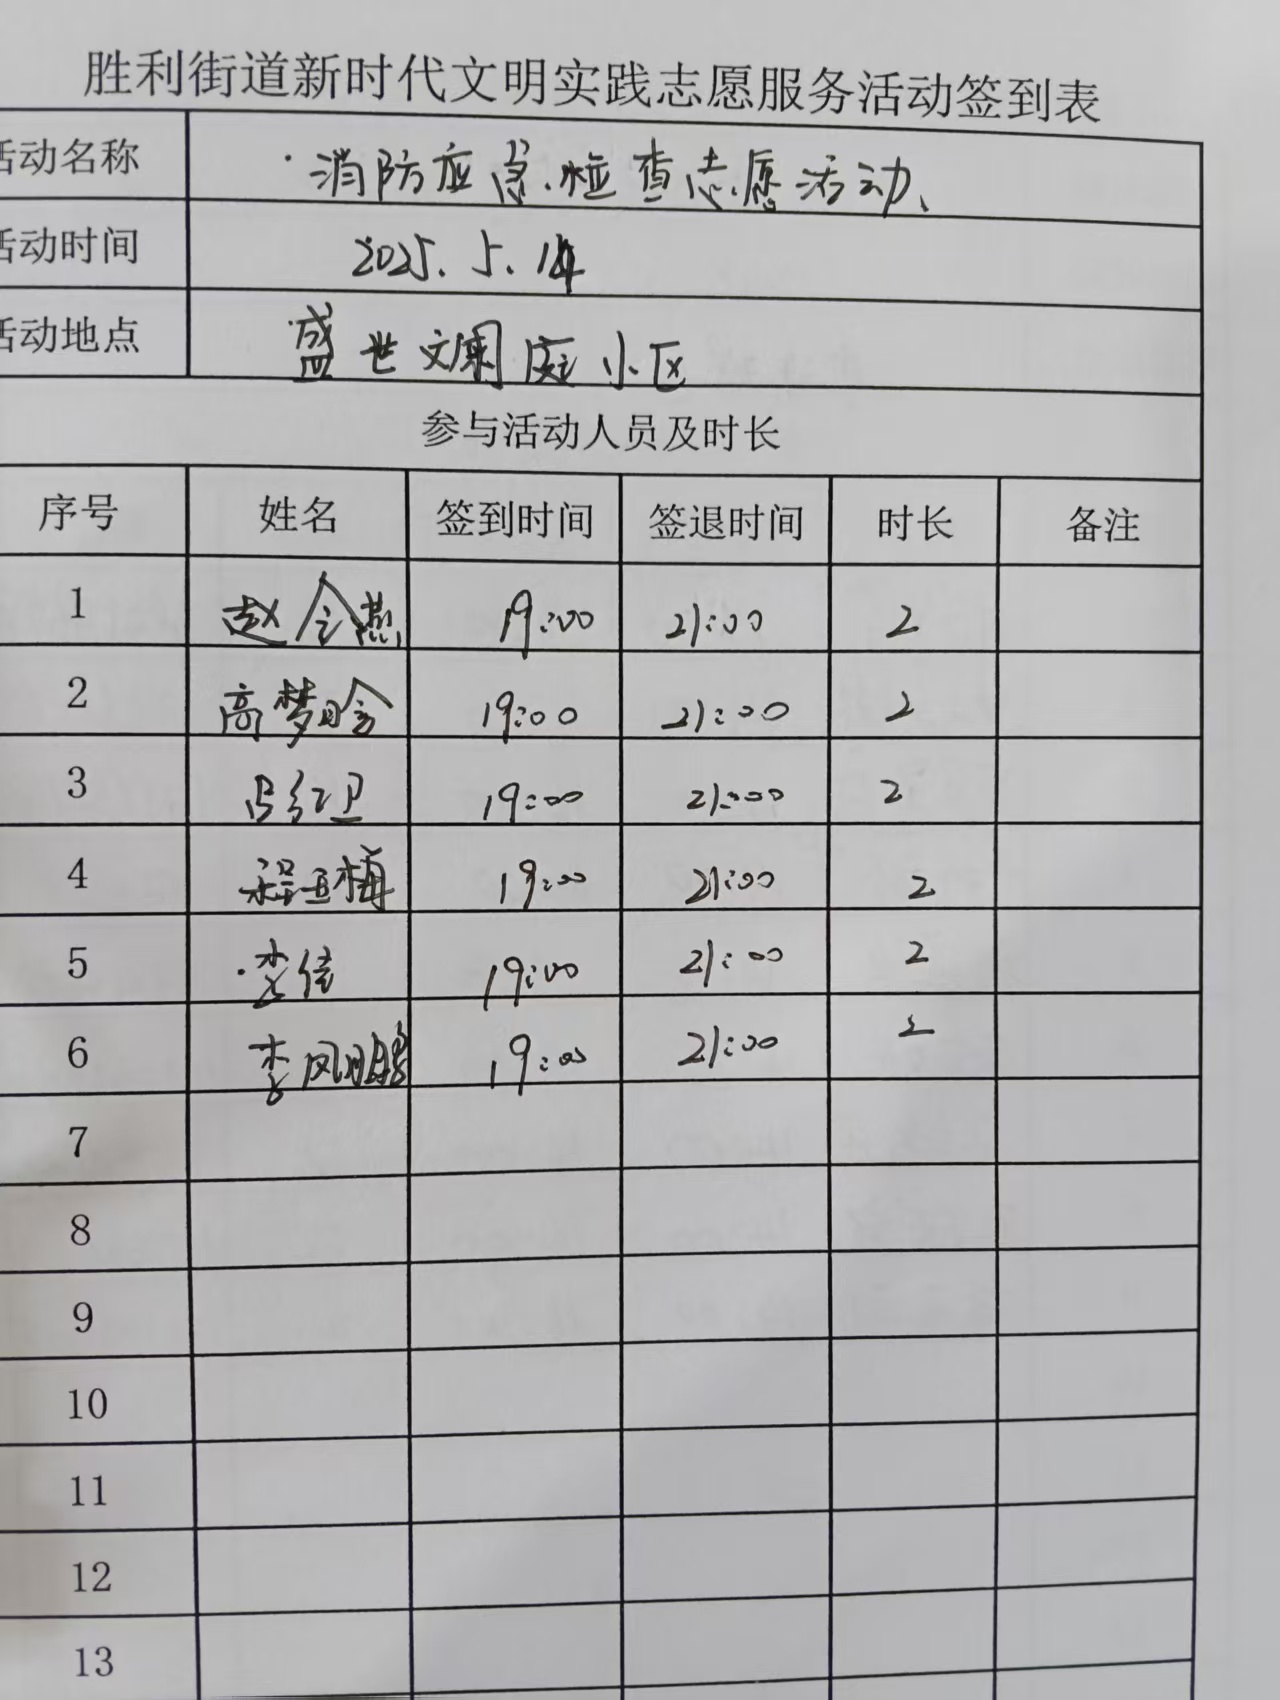 胜利街道新时代文明实践志愿服务活动签到表
活动名称 消防应急检查志愿活动、
活动时间 2025.5.14
活动地点 盛世文澜庭小区
参与活动人员及时长
序号 姓名 签到时间 签退时间 时长 备注
1 赵会燕 19:00 21:00 2
2 高梦晗 19:00 21:00 2
3 马红卫 19:00 21:00 2
4 程亚梅 19:00 21:00 2
5 李佳 19:00 21:00 2
6 李凤鹏 19:00 21:00 2
7
8
9
10
11
12
13